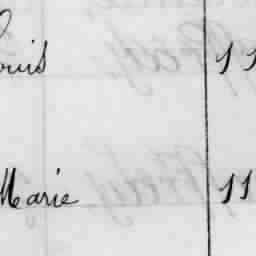 ouis 11
Marie 11